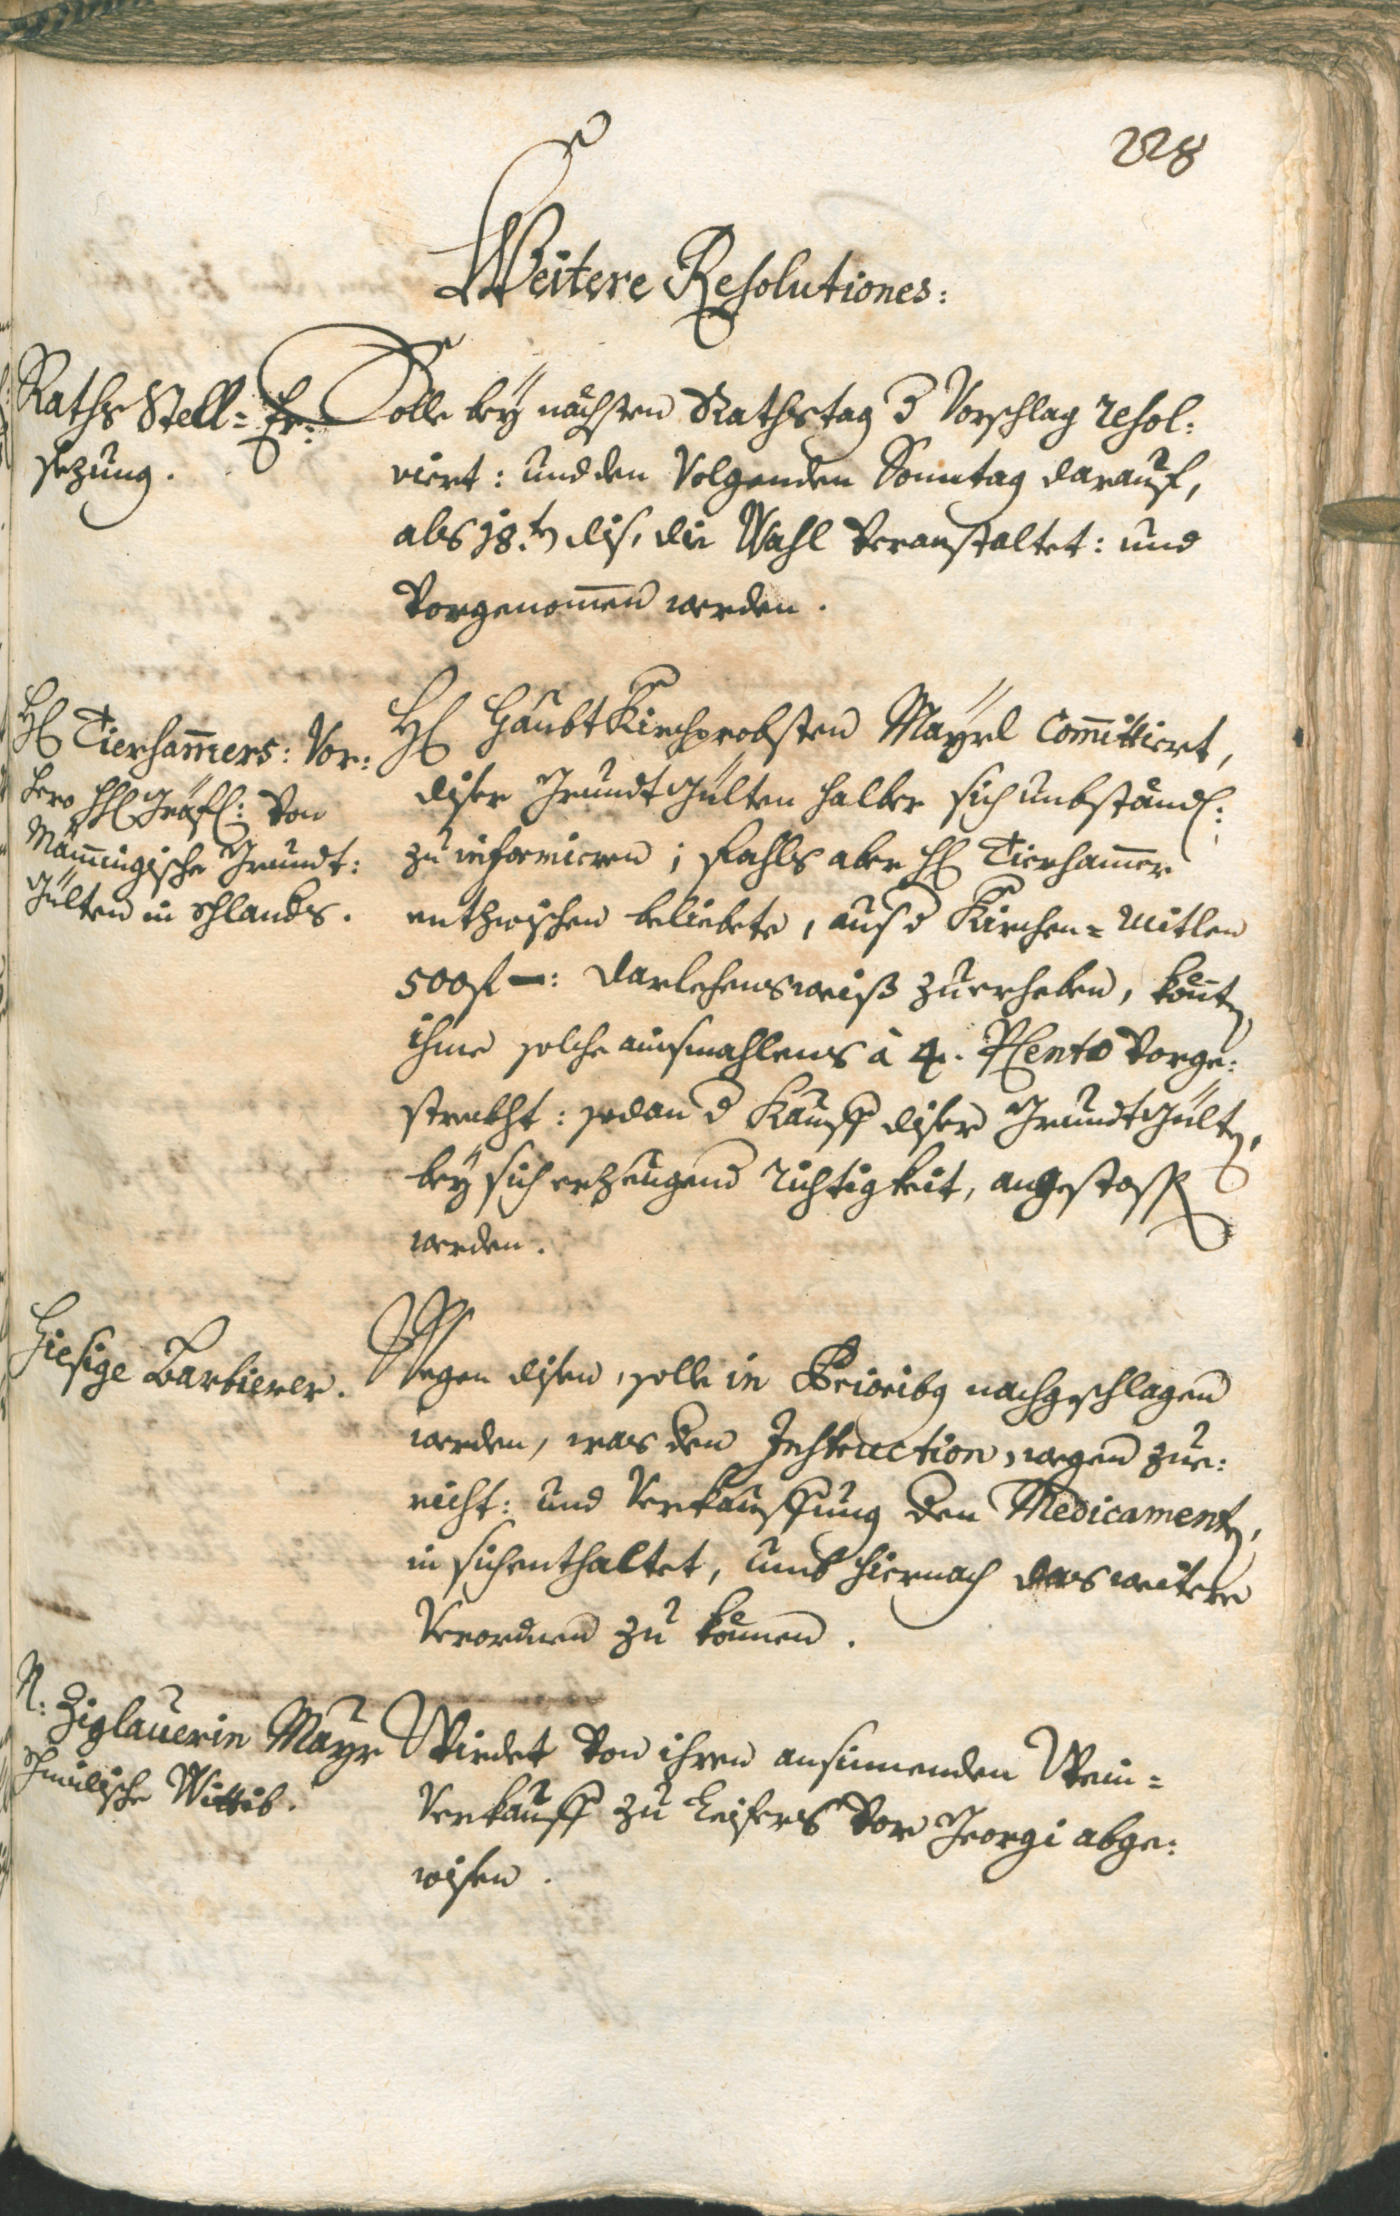 228
Weitere Resolutiones:
Raths Stell= Er:
sezung.
Solle bey nächsten Rathstag d Vorschlag resol:
viert: und den Volgenden Sonntag darauf,
als 18.tn dis, die Wahl Veranstaltet: und
Vorgenomen werden.
H Tierhamers: Vor:
hero Gräfl: Von
Mämingische Grundt:
Gülten in Schlands.
H Haubt Kirchprobsten Mayrl Comittiert,
diser Grundt Gülten halber sich umbständl:
zu informieren; Fahls aber H Tierhamer
entzwischen beliebete, aus d Kirchen= Mitlen
500 f —: darlehensweiß zuerheben, könte
ihme solche ainsmahlens à 4. P Cento Vorge:
streckht: sodan d Kauff diser Grundt Gülten,
bey sich erzeugend Richtigkeit, angestossen
werden.
Hiesige Barbierer.
Wegen disen, solle in Prioribus nachgeschlagen
werden, was den Instruction, wegen zue:
richt: und Verkauffung den Medicamenten,
in sich enthaltet, umb hiernach das weitere
Verordnen zu können.
N: Ziglauerin Mayr
Schmidische Wittib.
Wirdet Von ihren ansinnenden Wein=
Verkauff zu Leifers Vor Georgi abge:
wisen.